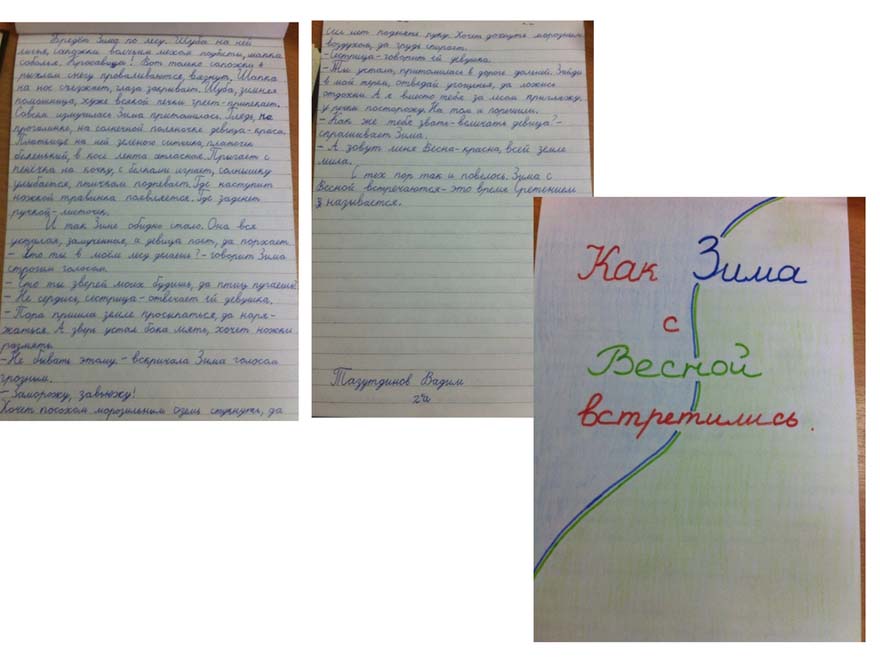 Бредёт Зима по лесу. Шуба на ней
лисья, сапожки волчьим мехом подбиты, шапка
соболья. Красавица! Вот только сапожки в
рыхлом снегу проваливаются, вязнут. Шапка
на нос съезжает, глаза закрывает. Шуба, зимняя
помощница, хуже всякой печки греет-припекает.
Совсем измучилась Зима притомилась. Глядь, на
прогалинке, на солнечной поляночке девица-краса.
Платьице на ней зеленого ситчика, платочек
беленький, в косе лента атласная. Прыгает с
пенечка на кочку, с белками играет, солнышку
улыбается, птичкам подпевает. Где наступит
ножкой травинка появляется. Где заденет
ручкой-листочек.
И так Зиме обидно стало. Она вся
усталая, замученная, а девица поет, да порхает.
- Что ты в моём лесу делаешь? - говорит Зима
строгим голосом.
- Что ты зверей моих будишь, да птиц пугаешь?
- Не сердись, сестрица - отвечает ей девушка.
- Пора пришла земле просыпаться, да наря-
жаться. А зверь устал бока мять, хочет ножки
размять.
- Не бывать этому - вскричала Зима голосом
грозным.
- Заморожу, завьюжу!
Хочет посохом морозильным оземь стукнуть, да
сил нет поднять руку. Хочет дохнуть морозным
воздухом, да грудь спирает.
- Сестрица - говорит ей девушка.
- Ты устала, притомилась в дороге дальней. Зайди
в мой терем, отведай угощенья, да ложись
отдохни. А я вместо тебя за лесом пригляжу,
у речки посторожу. На том и порешили.
- Как же тебя звать-величать девица? -
спрашивает Зима.
- А зовут меня Весна-красна, всей земле
мила.
С тех пор так и повелось. Зима с
Весной встречаются - это время Сретением
и называется.
Тазутдинов Вадим
2"а"
Как Зима
с
Весной
встретились.